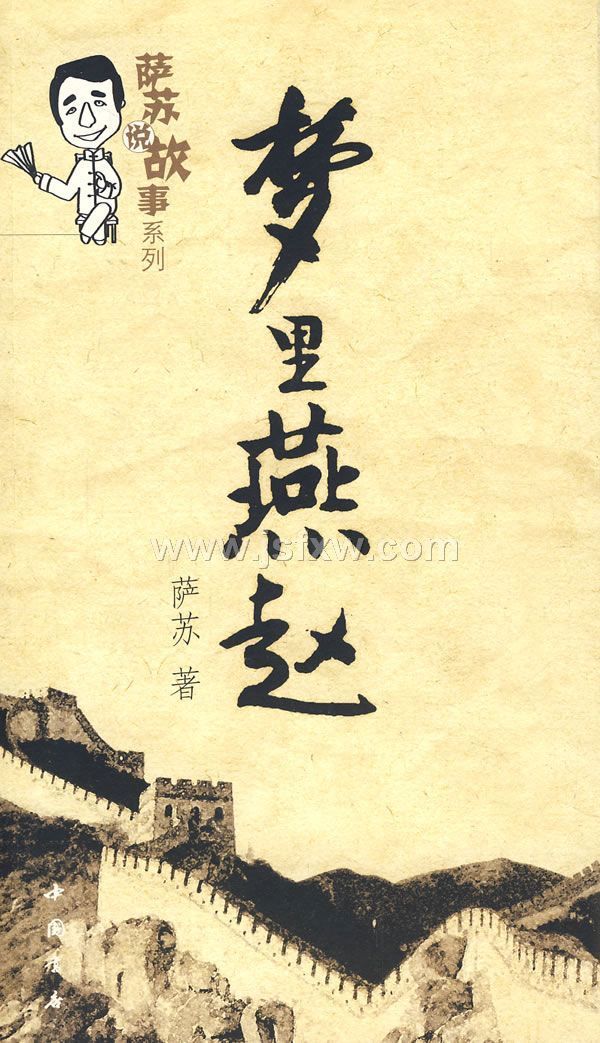 萨苏说故事系列
梦里燕赵
www.jsfxw.com
萨苏 著
中国书店